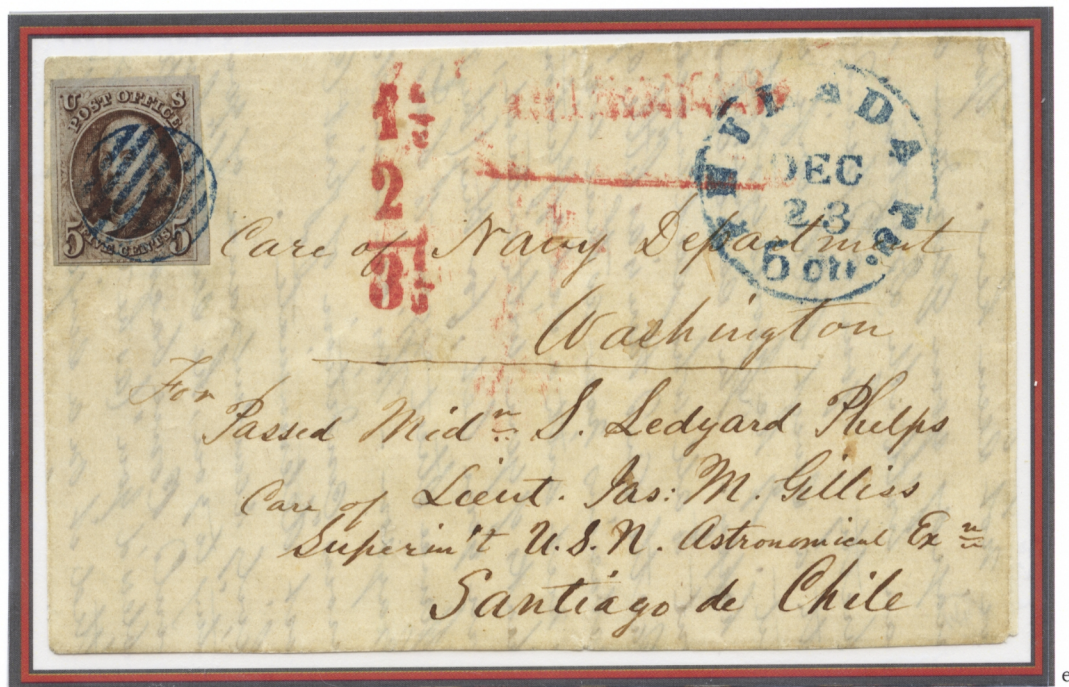 U S
POST OFFICE
5 FIVE CENTS 5
1 1/2
2
3 1/2
DEC
23
5 cts.
Care of Navy Department
Washington
For
Passed Midn S. Ledyard Phelps
Care of Lieut. Jas: M. Gilliss
Superin't U.S.N. Astronomical Exn
Santiago de Chile
e